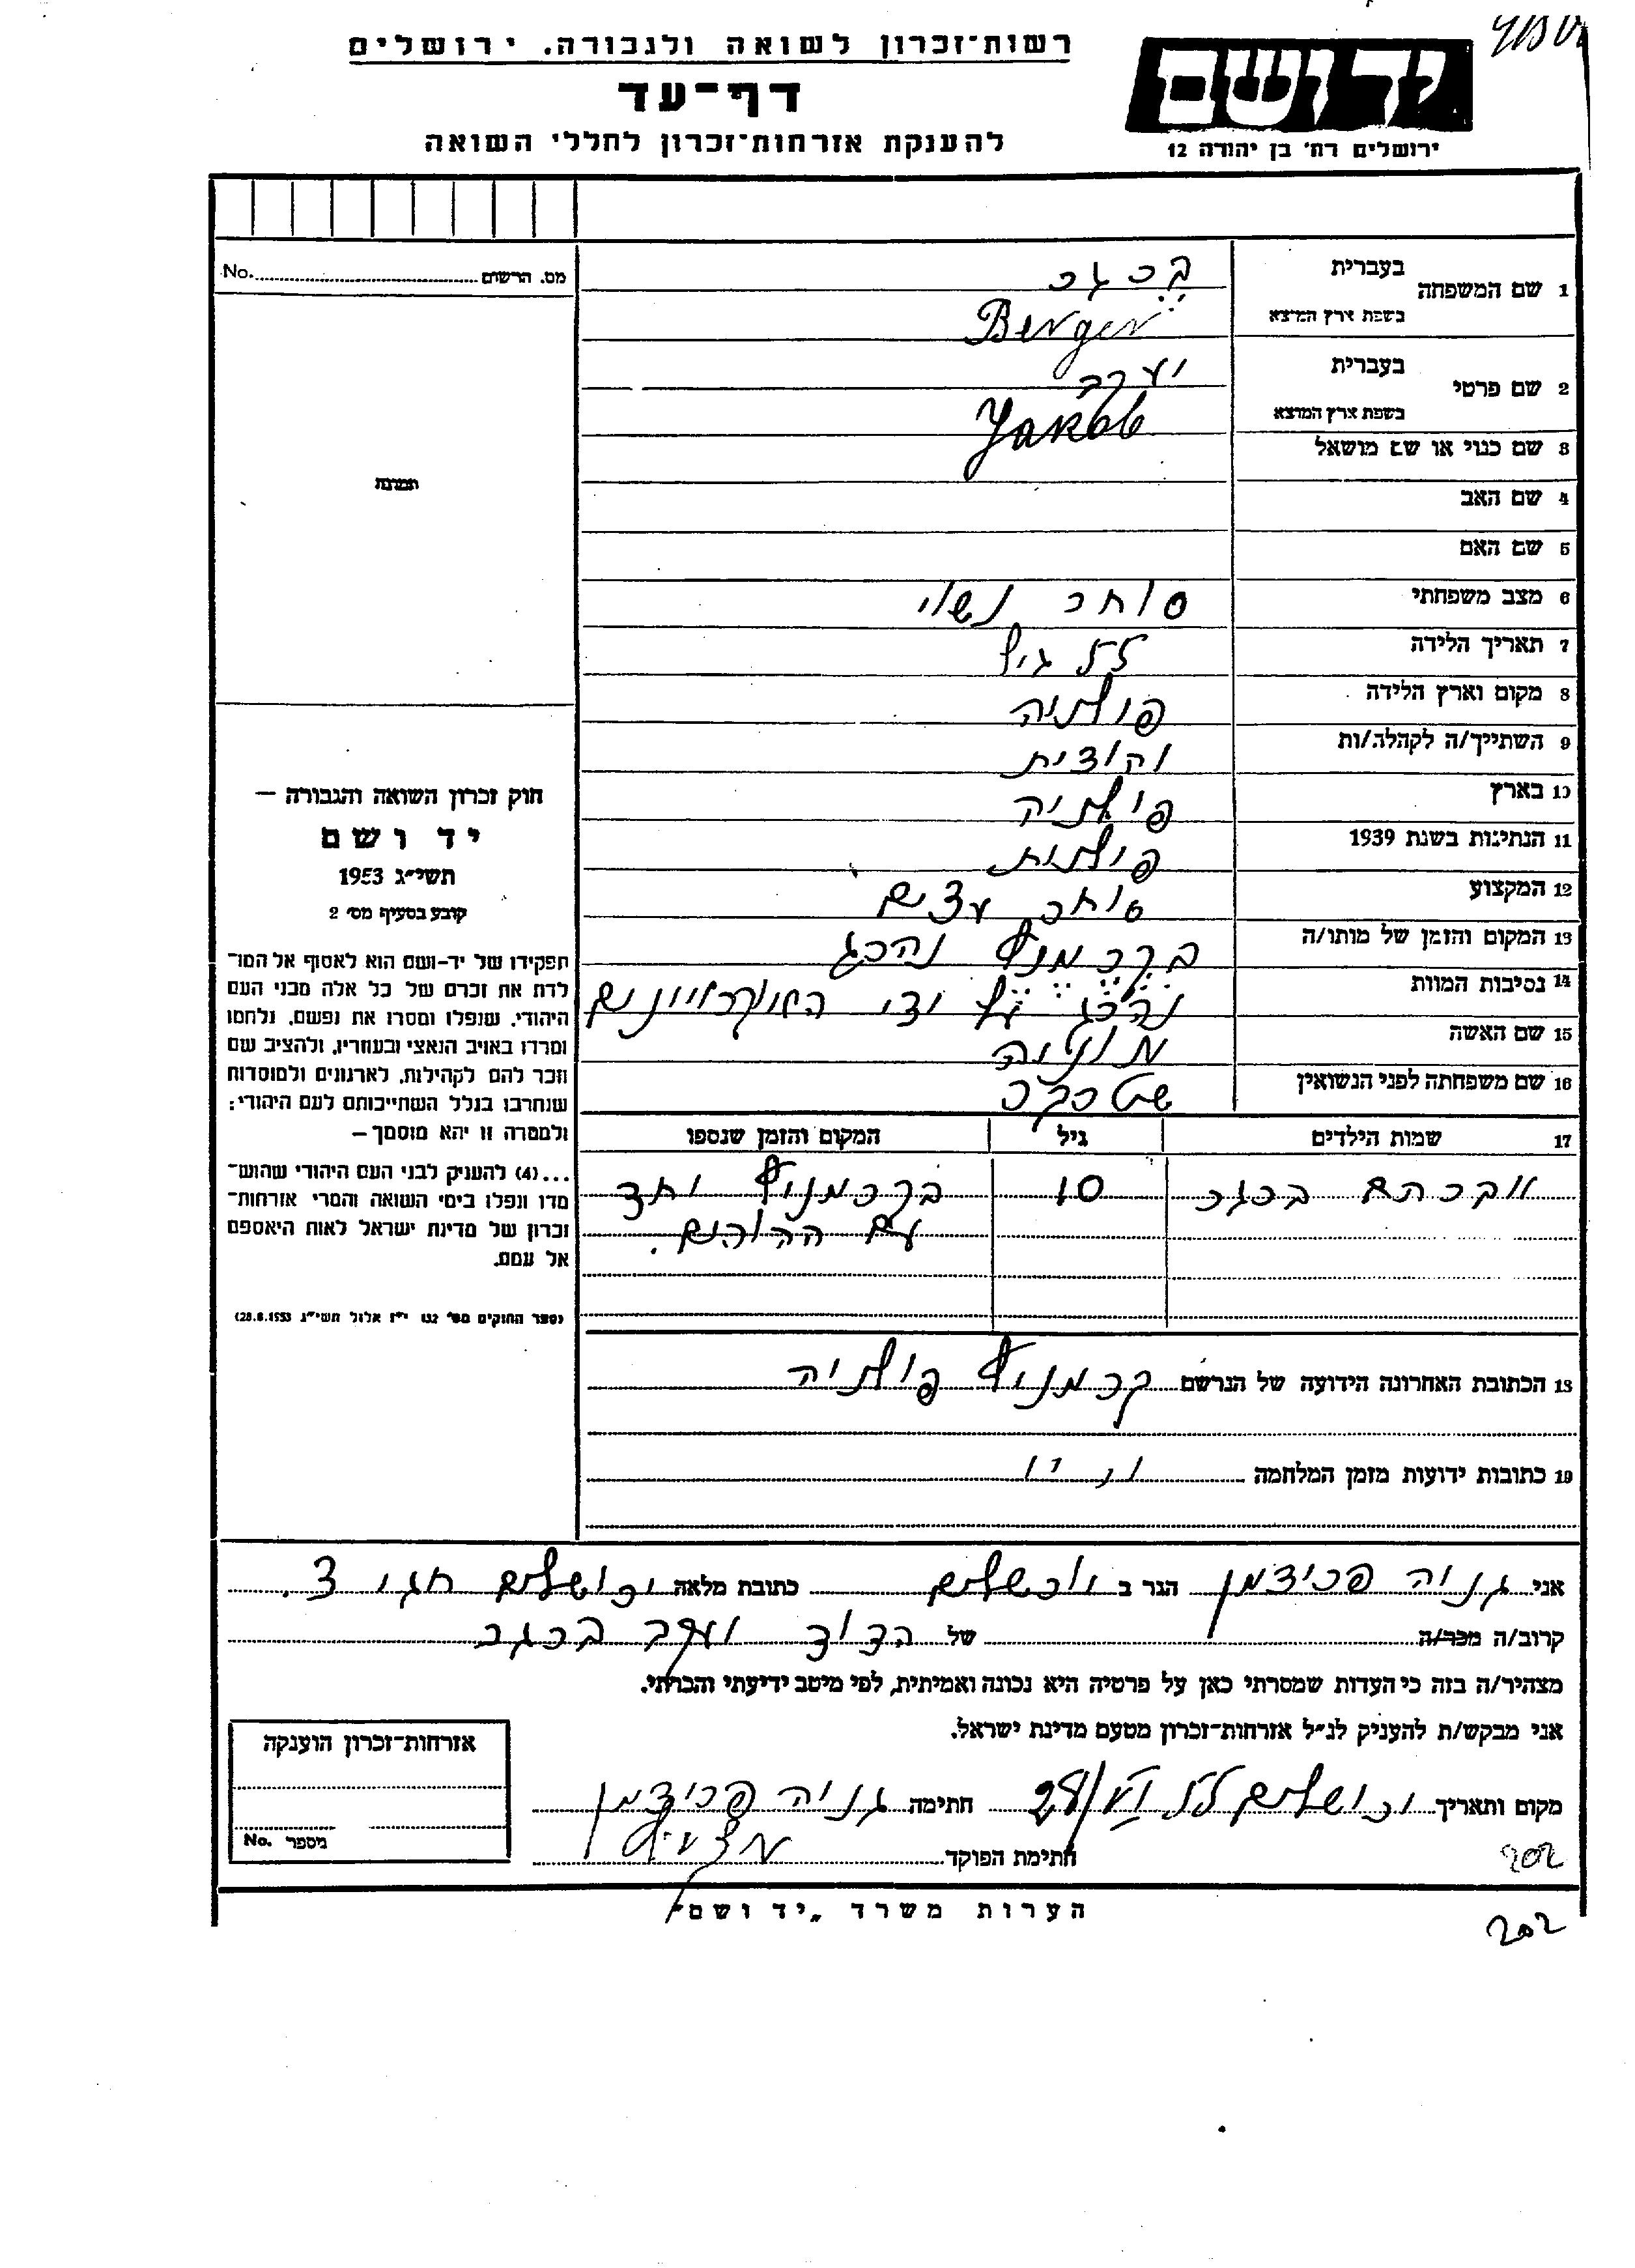 רשות־זכרון לשואה ולגבורה. ירושלים
דף־עד
להענקת אזרחות־זכרון לחללי השואה
יד ושם
ירושלים רח' בן יהודה 12
מס. הרשום No.
1 שם המשפחה בעברית ברגר
בשפת ארץ המוצא Berger
2 שם פרטי בעברית יעקב
בשפת ארץ המוצא Yakob
3 שם כנוי או שם מושאל
תמונה
4 שם האב
5 שם האם
6 מצב משפחתי סוחר נשוי
7 תאריך הלידה 55 גיל
8 מקום וארץ הלידה פולניה
9 השתייך/ה לקהלה/ות
10 בארץ פולניה
11 הנתינות בשנת 1939 פולנית
12 המקצוע סוחר עצים
13 המקום והזמן של מותו/ה נהרג
14 נסיבות המוות נהרג על ידי האוקראיינים
15 שם האשה
16 שם משפחתה לפני הנשואין
17 שמות הילדים גיל המקום והזמן שנספו
אברהם ברגר 10 יחד
עם ההורים.
חוק זכרון השואה והגבורה —
יד ושם
תשי"ג 1953
קובע בסעיף מס' 2
תפקידו של יד-ושם הוא לאסוף אל המו־
לדת את זכרם של כל אלה מבני העם
היהודי, שנפלו ומסרו את נפשם, נלחמו
ומרדו באויב הנאצי ובעוזריו, ולהציב שם
וזכר להם לקהילות, לארגונים ולמוסדות
שנחרבו בגלל השתייכותם לעם היהודי;
ולמטרה זו יהא מוסמך —
...(4) להעניק לבני העם היהודי שהוש־
מדו ונפלו בימי השואה והמרי אזרחות־
זכרון של מדינת ישראל לאות היאספם
אל עמם.
(ספר החוקים מס' 132 י"ז אלול תשי"ג 28.8.1953)
18 הכתובת האחרונה הידועה של הנרשם פולניה
19 כתובות ידועות מזמן המלחמה
אני גניה פרידמן הגר ב ירושלים כתובת מלאה ירושלים חגי 3.
קרוב/ה מכר/ה של הדוד יעקב ברגר
מצהיר/ה בזה כי העדות שמסרתי כאן על פרטיה היא נכונה ואמיתית, לפי מיטב ידיעתי והכרתי.
אני מבקש/ת להעניק לנ"ל אזרחות־זכרון מטעם מדינת ישראל.
מקום ותאריך ירושלים 28/VI 55 חתימה גניה פרידמן
חתימת הפוקד
אזרחות־זכרון הוענקה
מספר No.
202
הערות משרד „יד ושם"
202